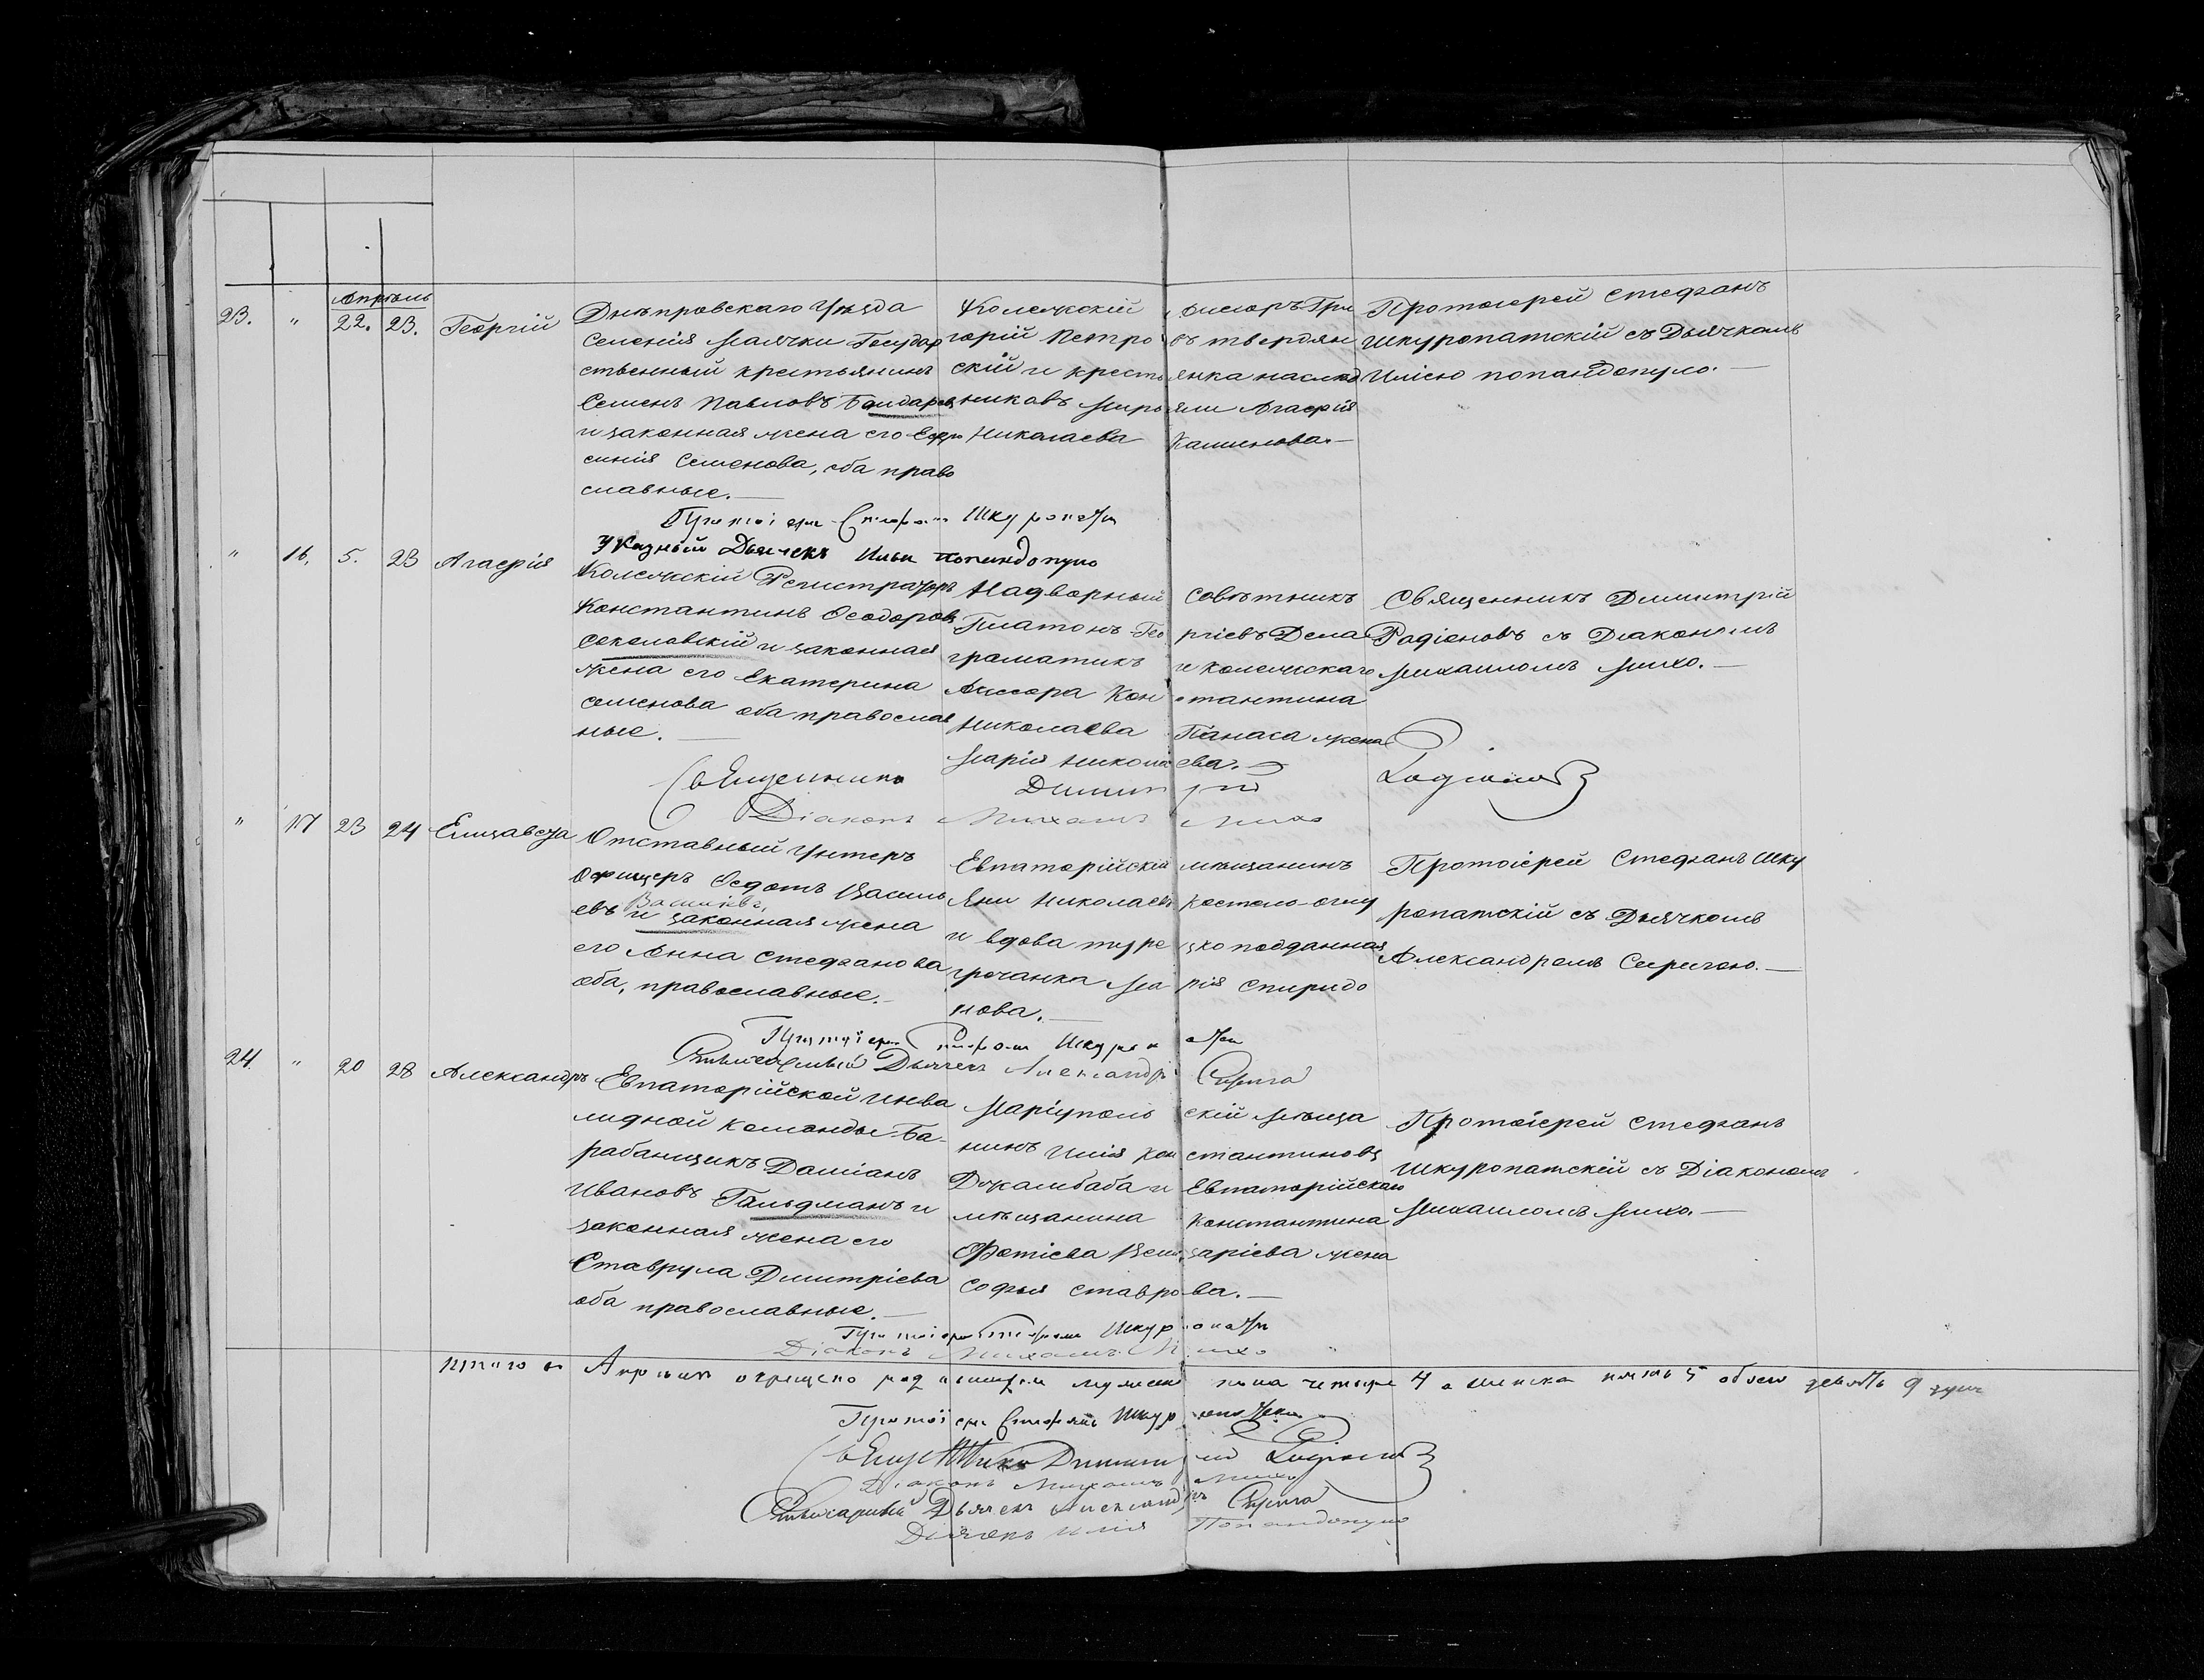 Апрѣль
23. " 22. 23. Георгій
Днѣпровскаго Уѣзда
Селенія Маячки Государ
ственный крестьянинъ
Семенъ Павловъ Бондарев
и законная жена его Евфро
синія Семенова, оба право
славные.
Колежскій Ассесоръ Гри
горій Петро въ Твердян
скій и крестьянка наслед
никовъ
Николаева Каменова.
Протоіерей Стефанъ
Шкуропатскій съ Дьячкомъ
Иліею Попандопуло.
Протоіерей Стефанъ Шкуропатс
Указный Дьячекъ Илья Попандопуло
" 16. 5. 23 Агафія
Колежскій Регистраторъ
Константинъ Ѳеодоровъ
Соколовскій и законная
жена его Екатерина
Семенова оба православ
ные.
Надворный Совѣтникъ
Платонъ Геор ргіевъ Дела
граматикъ и Колежскаго
Ассесора Кон стантина
Николаева Панаса жена
Марія Никола ева.
Священникъ Димитрій
Радіоновъ съ Діакономъ
Михаиломъ Михо.
Священникъ Димитрій Радіоновъ
Діаконъ Михаилъ Михо
" 17 23 24 Елизавета
Отставный Унтеръ
Офицеръ Ѳедотъ Василь
евъ Василіевъ,
и законная жена
его Анна Стефанова
оба, православные.
Евпаторійскій мѣщанинъ
Яни Николаевъ
и вдова туре цко подданная
гречанка Ма рія Спиридо
нова.
Протоіерей Стефанъ Шку
ропатскій съ Дьячкомъ
Александромъ Серигою.
Протоіерей Стефанъ Шкуропатс
Дьячекъ Александръ Серига
24. " 20 28 Александръ
Евпаторійской Инва
лидной команды Ба-
рабанщикъ Даміанъ
Ивановъ Гольдманъ и
законная жена его
Ставрула Дмитріева
оба православные.
Маріуполь скій Мѣща
нинъ Илія Кон стантиновъ
Джамбаба и Евпаторійскаго
мѣщанина Константина
Фотіева жена
Софья Ставро ва.
Протоіерей Стефанъ
Шкуропатскій съ Діакономъ
Михаиломъ Михо.
Протоіерей Стефанъ Шкуропатс
Діаконъ Михаилъ Михо
Итого въ Апрѣлѣ окрещено родившихся мужеска пола четыре 4 а женска пять 5 обоего девять 9 душъ
Протоіерей Стефанъ Шкуропатскій
Священникъ Димитрій Радіоновъ
Діаконъ Михаилъ Михо
Дьячекъ Александръ Серига
Дьячекъ Илія Попандопуло